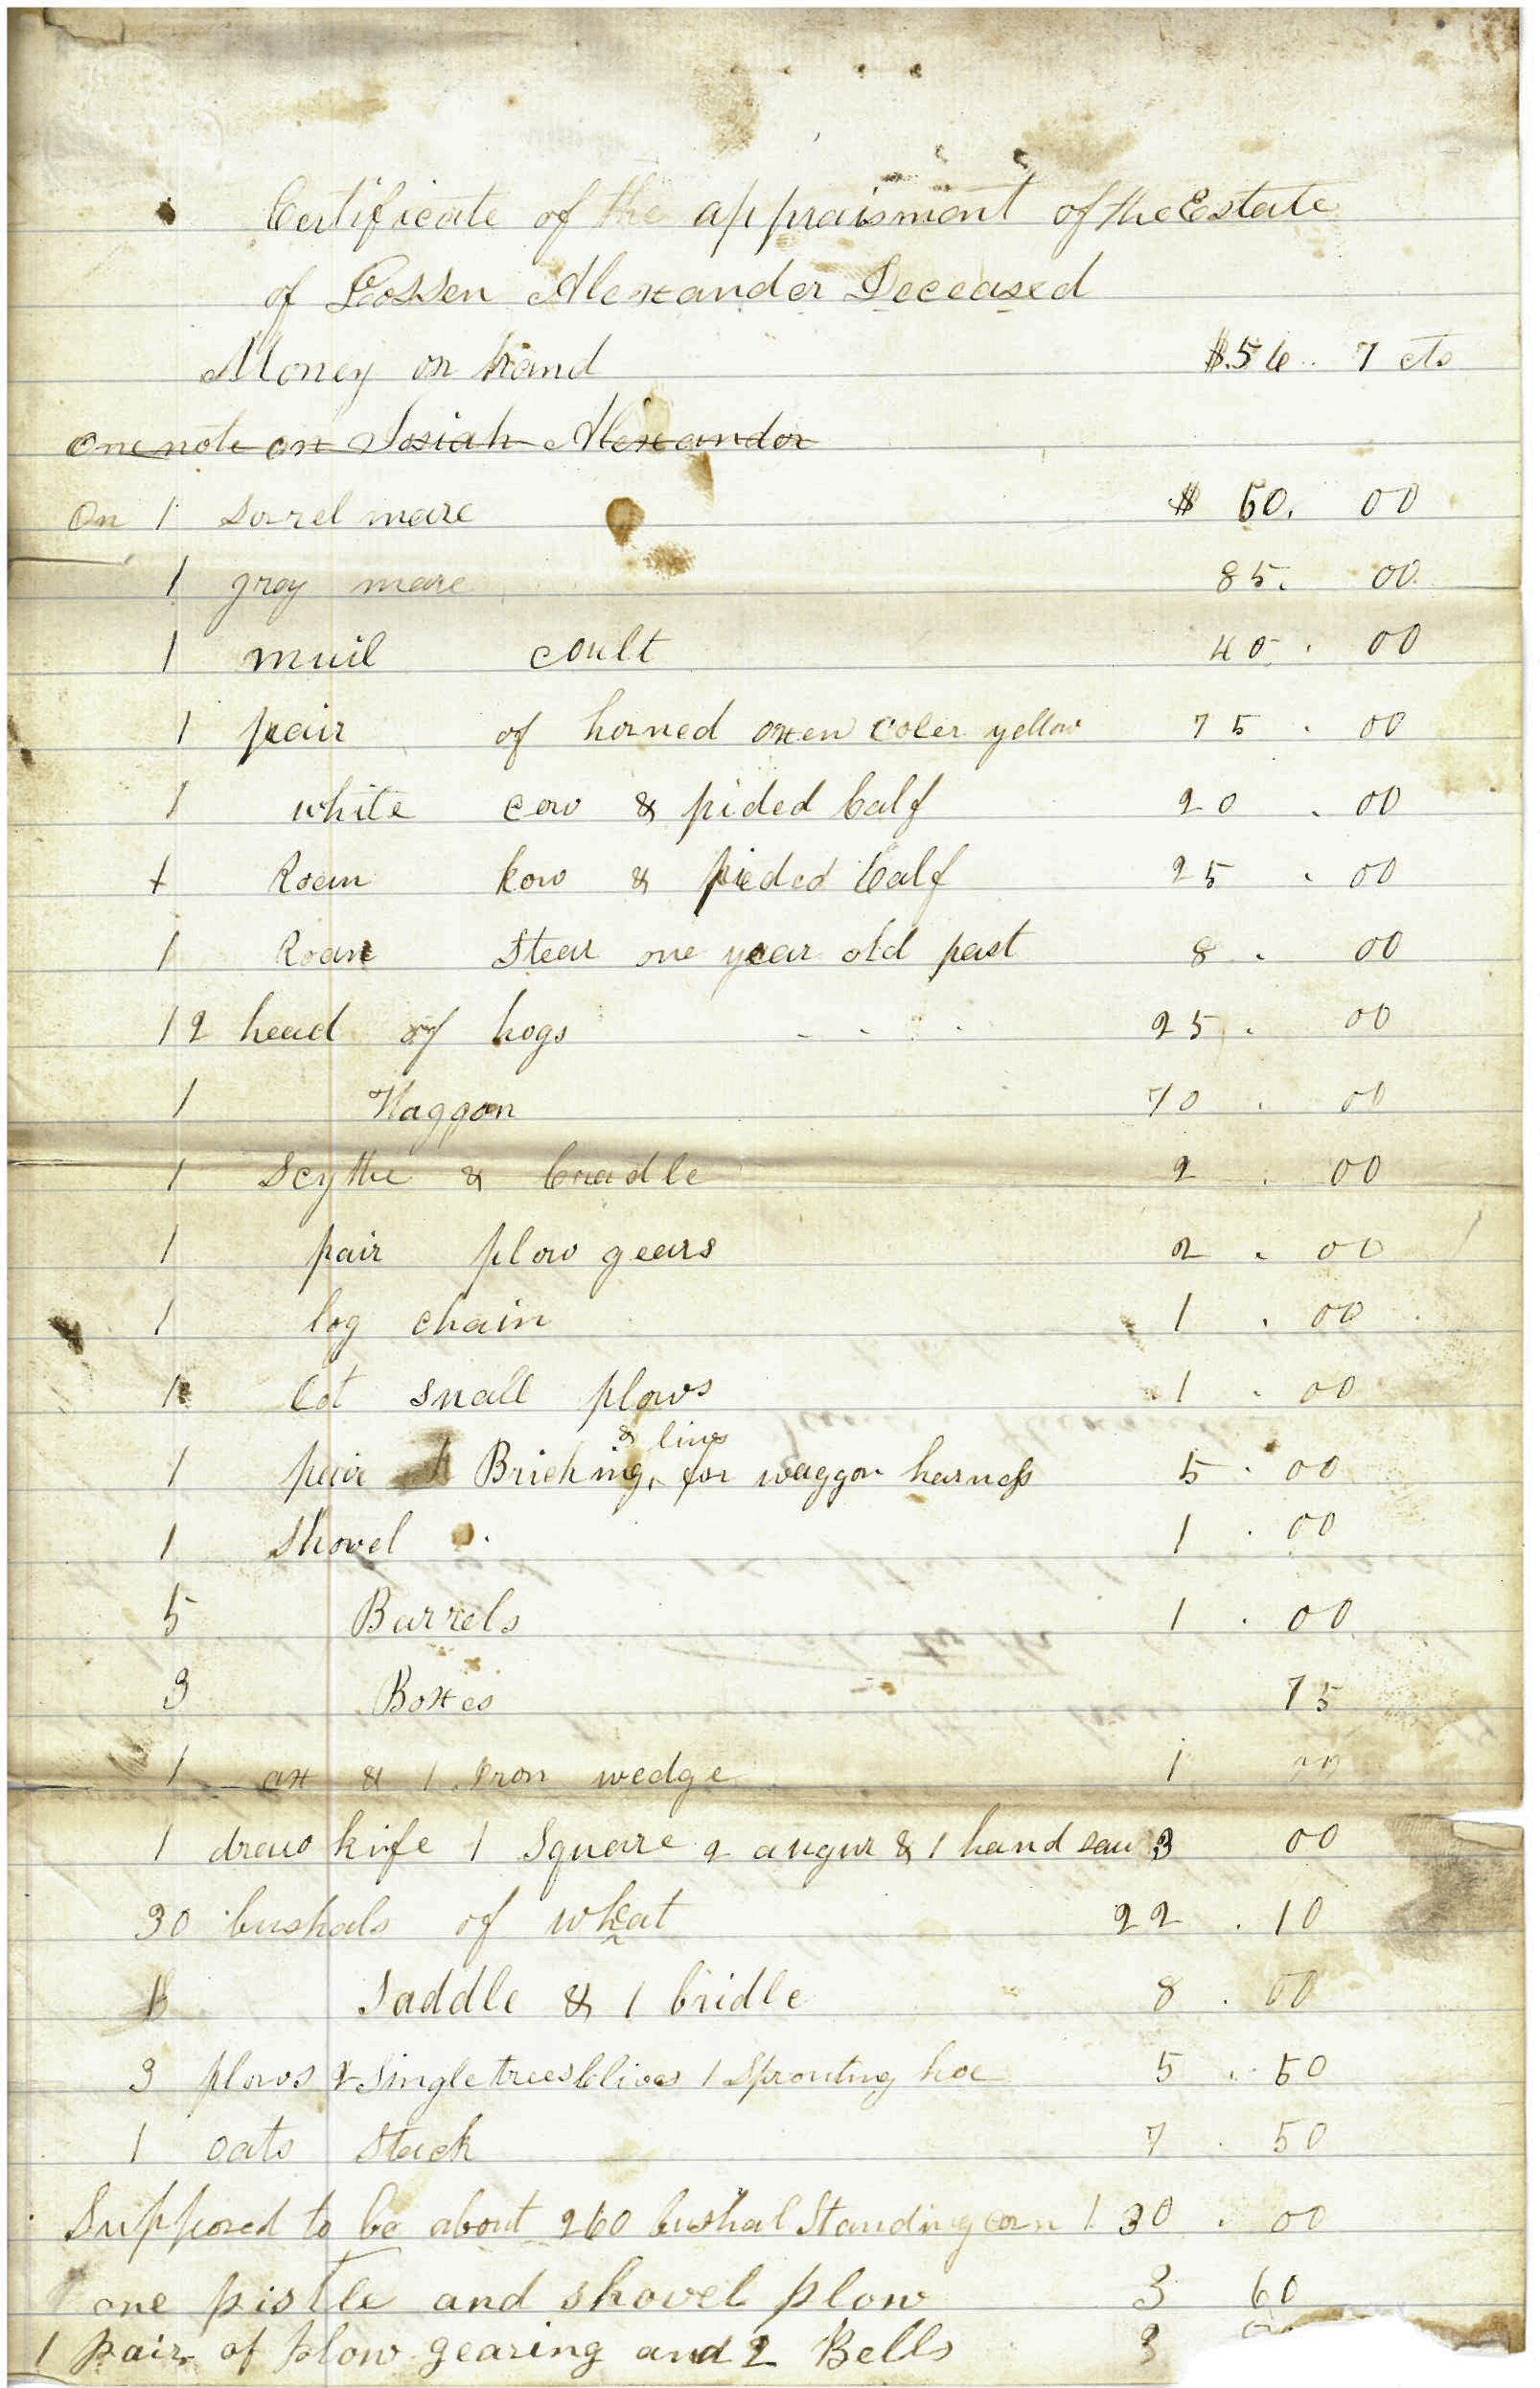 Certificate of the appraisment of the Estate
of Possen Alexander Deceased
Money on hand $.56.. 7 cts
One note on Josiah Alexander
On 1 sorrel mare $ 60. 00
1 gray mare 85. 00
1 muil coult 40. 00
1 pair of horned oxen coler yellow 75. 00
1 white cow & pided Calf 20. 00
1 Roan kow & pieded Calf 25. 00
1 Roan Stear one year old past 8. 00
12 head of hogs - - - 25. 00
1 Waggon 70. 00
1 Scythe & Cradle 2. 00
1 pair plow gears 2. 00
1 log chain 1. 00
1 Lot small plows 1. 00
& lines
1 pair Briching, for waggon harness 5. 00
1 Shovel 1. 00
5 Barrels 1. 00
3 Boxes 75
1 ax & 1 Iron wedge 1 00
1 draw knife 1 Square 2 augur & 1 hand saw 3 00
30 bushals of wheat 22. 10
1 Saddle & 1 bridle 8. 00
3 plows 2 Singletrees Clives 1 Sprouting hoe 5. 50
1 oats Stack 7. 50
Supposed to be about 260 bushal Standing corn 130. 00
one pistle and shovel plow 3 60
1 pair of plow gearing and 2 Bells 3